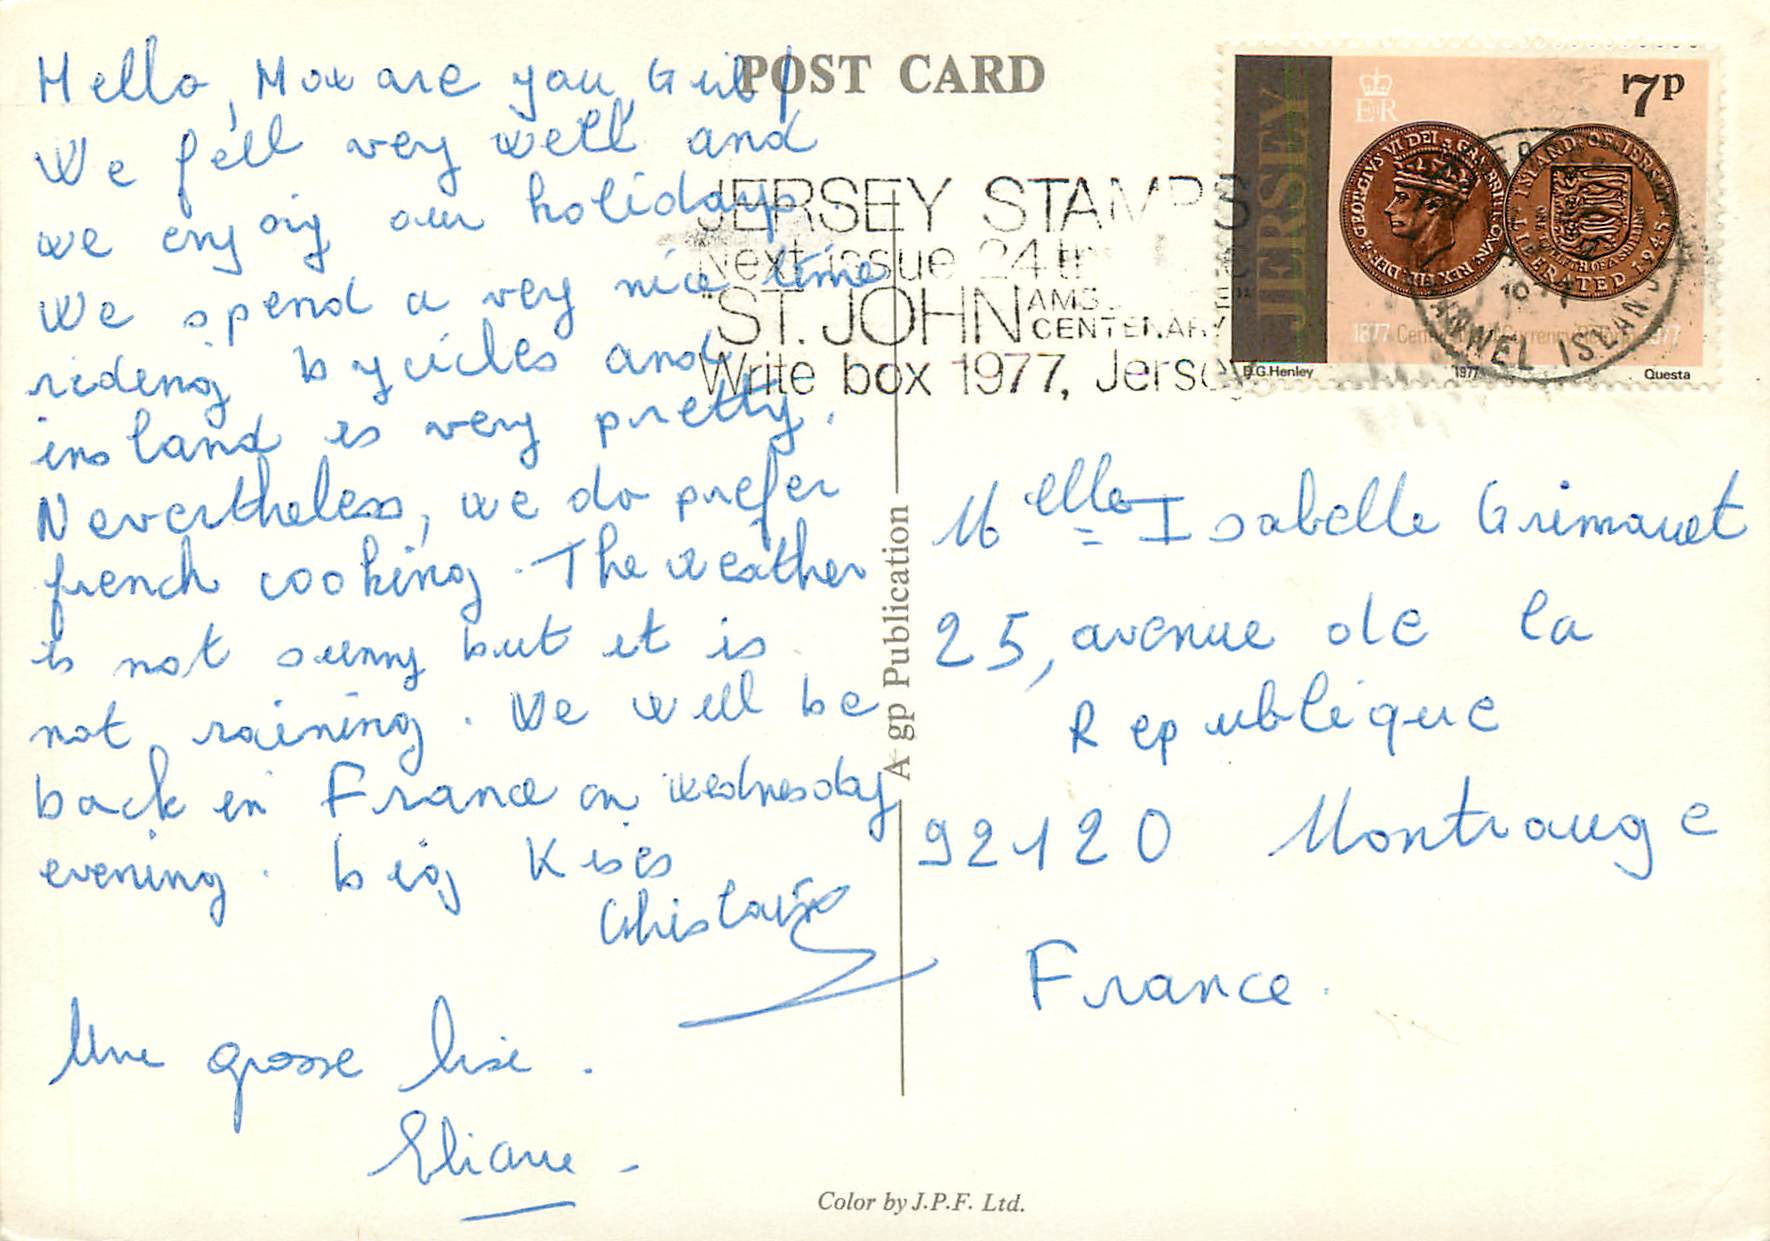 POST CARD
Hello, How are you, Girl!
We fell very well and
we enjoig our holidays.
We spend a very nice time
rideng bycicles and
insland is very pretty.
Nevertheless, we do prefer
french cooking. The weather
is not sunny but it is
not raining. We will be
back in France on wednesday
evening. big Kises
Ghislaine
Une grosse bise.
Eliane
JERSEY STAMPS
Next issue 24th
ST. JOHN AMB
CENTENARY
Write box 1977, Jersey
JERSEY
E R
7P
GEORGIVS VI DEI GRA BRITT OMN REX FID DEF
ISLAND OF JERSEY
LIBERATED 1945
1877 Centenary of Currency Reform 1977
D.G.Henley
1977
Questa
CHANNEL ISLANDS
Melle Isabelle Grimauet
25, avenue de la
Republique
92120 Montrouge
France.
A gp Publication
Color by J.P.F. Ltd.